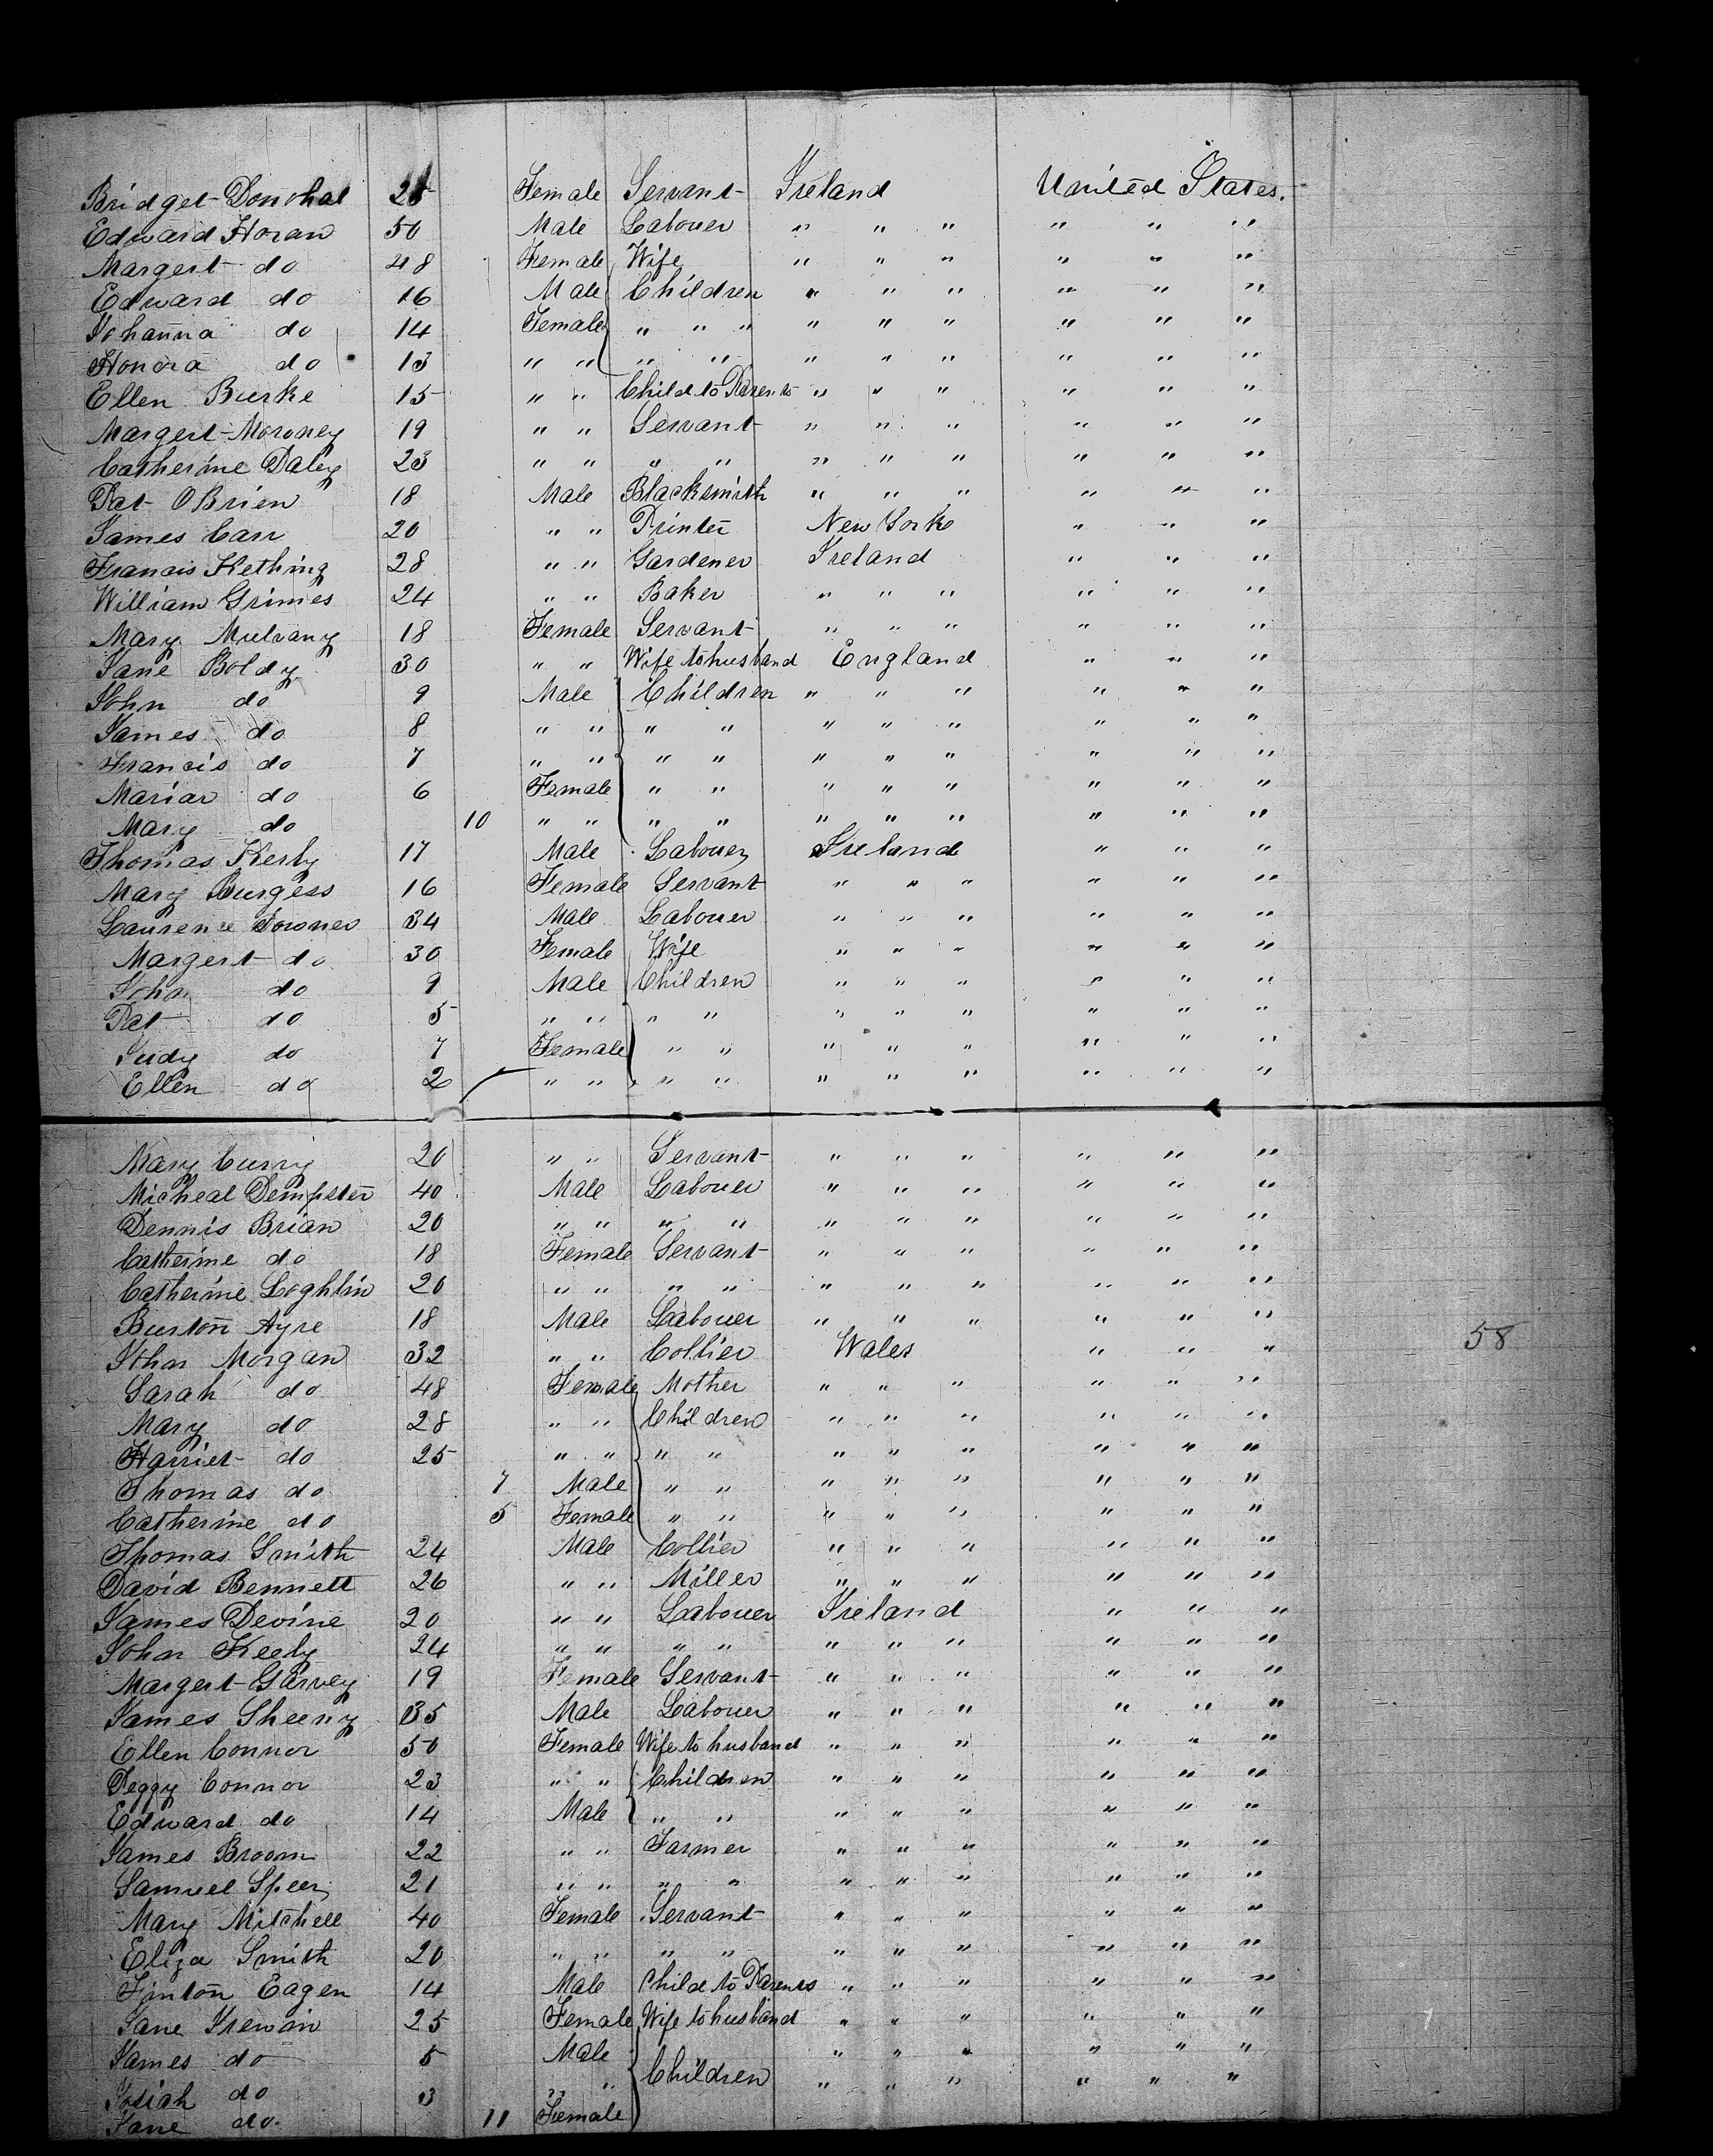 Bridget Donohal 25 Female Servant Ireland United States.
Edward Horan 50 Male Labouer " " " " " "
Margert do 48 Female Wife " " " " " "
Edward do 16 Male Children " " " " " "
Johanna do 14 Female " " " " " " " " "
Honora do 13 " " " " " " " " " "
Ellen Burke 15 " " Child to Parents " " " " " "
Margert Moroney 19 " " Servant " " " " " "
Catherine Daley 23 " " " " " " " " " "
Pat OBrien 18 Male Blacksmith " " " " " "
James Carr 20 " " Printer New York " " "
Francis Kething 28 " " Gardener Ireland " " "
William Grimes 24 " " Baker " " " " " "
Mary Mulvany 18 Female Servant " " " " " "
Jane Boldy 30 " " Wife to husband England " " "
John do 9 Male Children " " " " " "
James do 8 " " " " " " " " " "
Francis do 7 " " " " " " " " " "
Mariar do 6 Female " " " " " " " "
Mary do 10 " " " " " " " " " "
Thomas Kerby 17 Male Labouer Ireland " " "
Mary Burgess 16 Female Servant " " " " " "
Laurence 34 Male Labouer " " " " " "
Margert do 30 Female Wife " " " " " "
John do 9 Male Children " " " " " "
Pat do 5 " " " " " " " " " "
Judy do 7 Female " " " " " " " "
Ellen do 2 " " " " " " " " " "
Mary Curry 20 " " Servant " " " " " "
Micheal Dempster 40 Male Labouer " " " " " "
Dennis Brian 20 " " " " " " " " " "
Catherine do 18 Female Servant " " " " " "
Catherine Loghlin 20 " " " " " " " " " "
Burton Ayre 18 Male Labouer " " " " " "
58
John Morgan 32 " " Collier Wales " " "
Sarah do 48 Female Mother " " " " " "
Mary do 28 " " Children " " " " " "
Harriet do 25 " " " " " " " " " "
Thomas do 7 Male " " " " " " " "
Catherine do 5 Female " " " " " " " "
Thomas Smith 24 Male Collier " " " " " "
David Bennett 26 " " Miller " " " " " "
James Devine 20 " " Labouer Ireland " " "
John Keely 24 " " " " " " " " " "
Margert Garvey 19 Female Servant " " " " " "
James Sheeny 35 Male Labouer " " " " " "
Ellen Connor 50 Female Wife to husband " " " " " "
Peggy Connor 23 " " Children " " " " " "
Edward do 14 Male " " " " " " " "
James Broom 22 " " Farmer " " " " " "
Samuel Speer 21 " " " " " " " " " "
Mary Mitchell 40 Female Servant " " " " " "
Eliza Smith 20 " " " " " " " " " "
Finton Eagen 14 Male Child to Parents " " " " " "
Jane 25 Female Wife to husband " " " " " "
James do 5 Male " " " " " "
Josiah do 3 " " Children " " " " " "
Jane do 11 Female